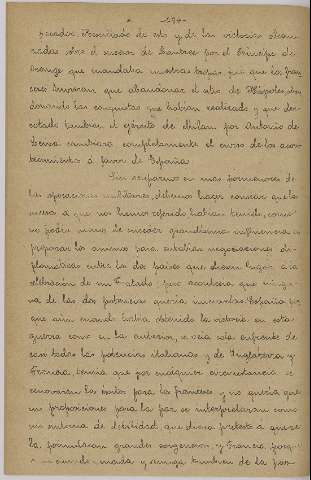 -194-
parador. Resultado de esto y de las victorias alcan-
zadas sobre el sucesor de Lautrec por el Príncipe de
Orange que mandaba nuestras tropas fué que los fran-
ceses tuvieran que abandonar el sitio de Nápoles aban-
donando las conquistas que habían realizado y que der-
rotado también el ejército de Milan por Antonio de
Leiva cambiara completamente el curso de los acon-
tecimientos á favor de España.
Sin ocuparnos en mas pormenores de
las operaciones militares, debemos hacer constar que la
guerra a que nos hemos referido habían tenido, como
no podía menos de suceder grandísima influencia en
preparar los ánimos para entablar negociaciones di-
plomáticas entre los dos países que dieran lugar á la
celebración de un Tratado; pero acontecía que ningu-
na de las dos potencias quería iniciarlas España por
que aun cuando había obtenido la victoria en esta
guerra como en la anterior, se veía sola enfrente de
casi todas las potencias italianas y de Inglaterra y
Francia, temía que por cualquier circunstancia se
renovaran los éxitos para los franceses y no quería que
sus proposiciones para la paz se interpretaran como
un síntoma de debilidad que diera pretexto á que se
la formularan grandes exigencias, y Francia, porque
tambien de la paz